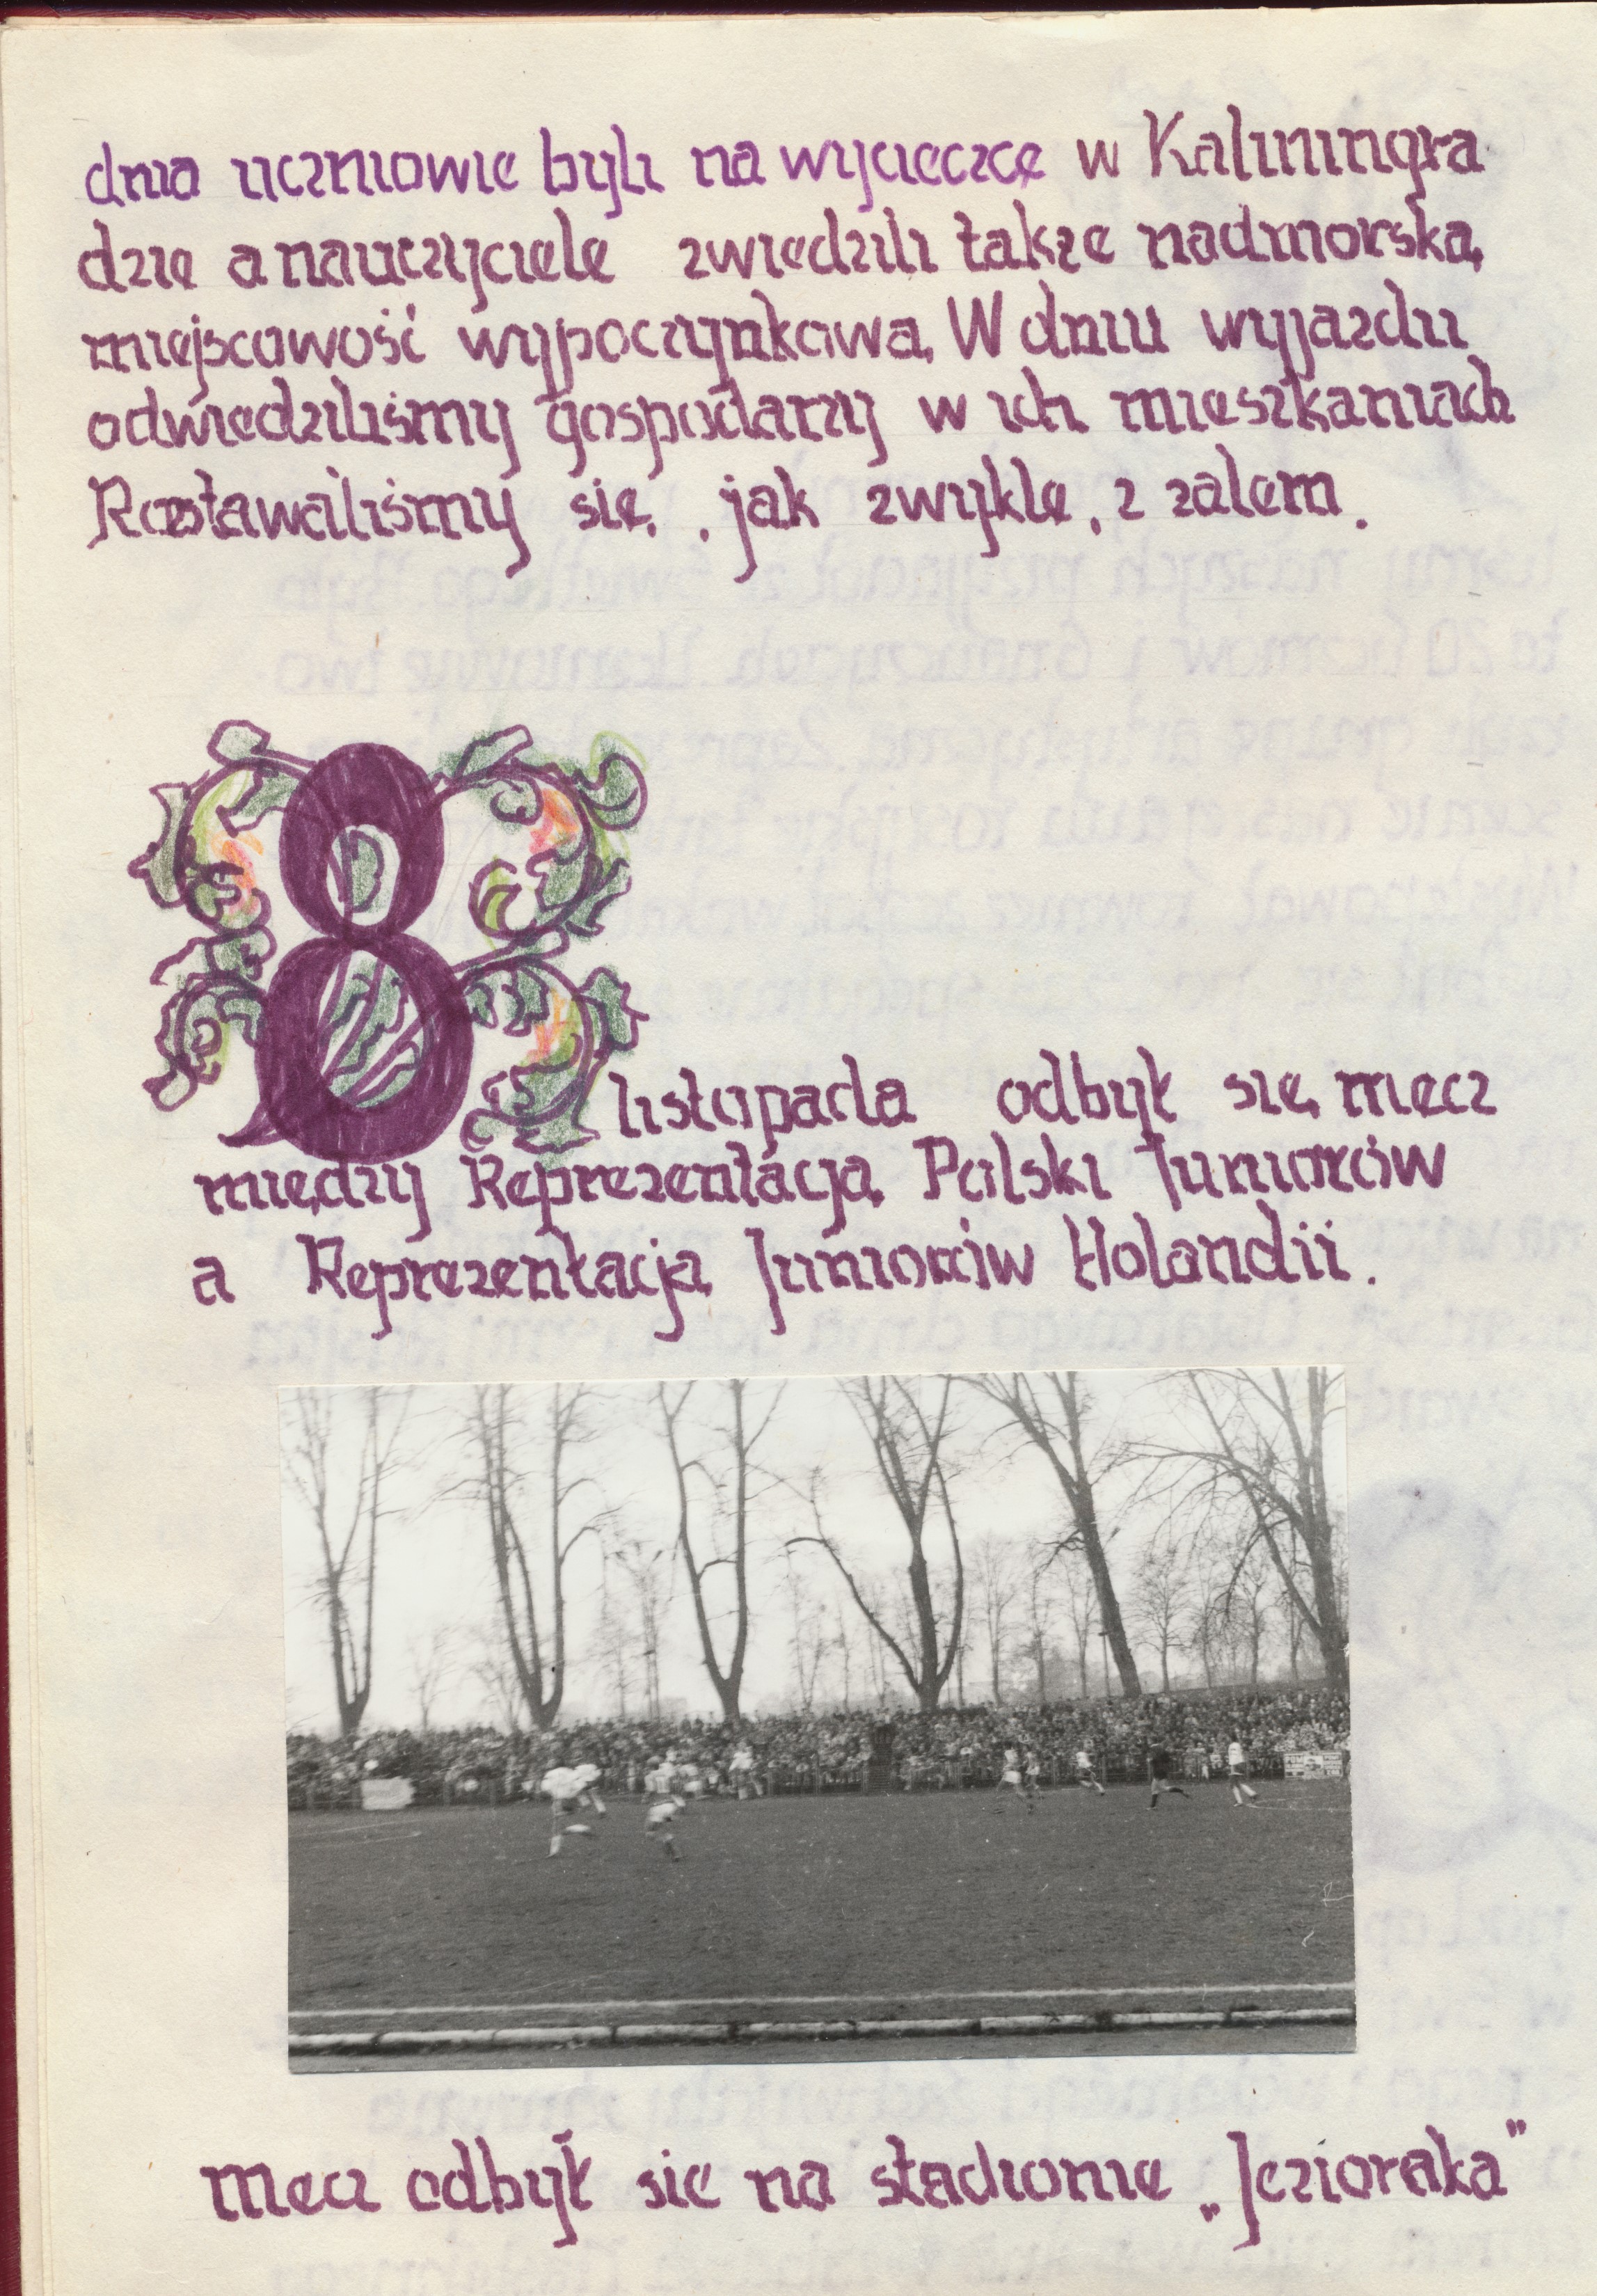 dnia uczniowie byli na wycieczce w Kaliningra
dzie a nauczyciele zwiedzili także nadmorską
miejscowość wypoczynkową. W dniu wyjazdu
odwiedziliśmy gospodarzy w ich mieszkaniach
Rozstawaliśmy się, jak zwykle, z żalem.
8 listopada odbył się mecz
między Reprezentacją Polski Juniorów
a Reprezentacją Juniorów Holandii.
Mecz odbył sie na stadionie „Jezioraka”